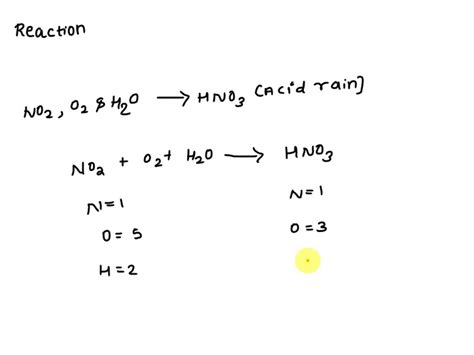 Reaction
NO₂, O₂ & H₂O → HNO₃ [Acid rain]
NO₂ + O₂ + H₂O → HNO₃
N=1 N=1
O=5 O=3
H=2